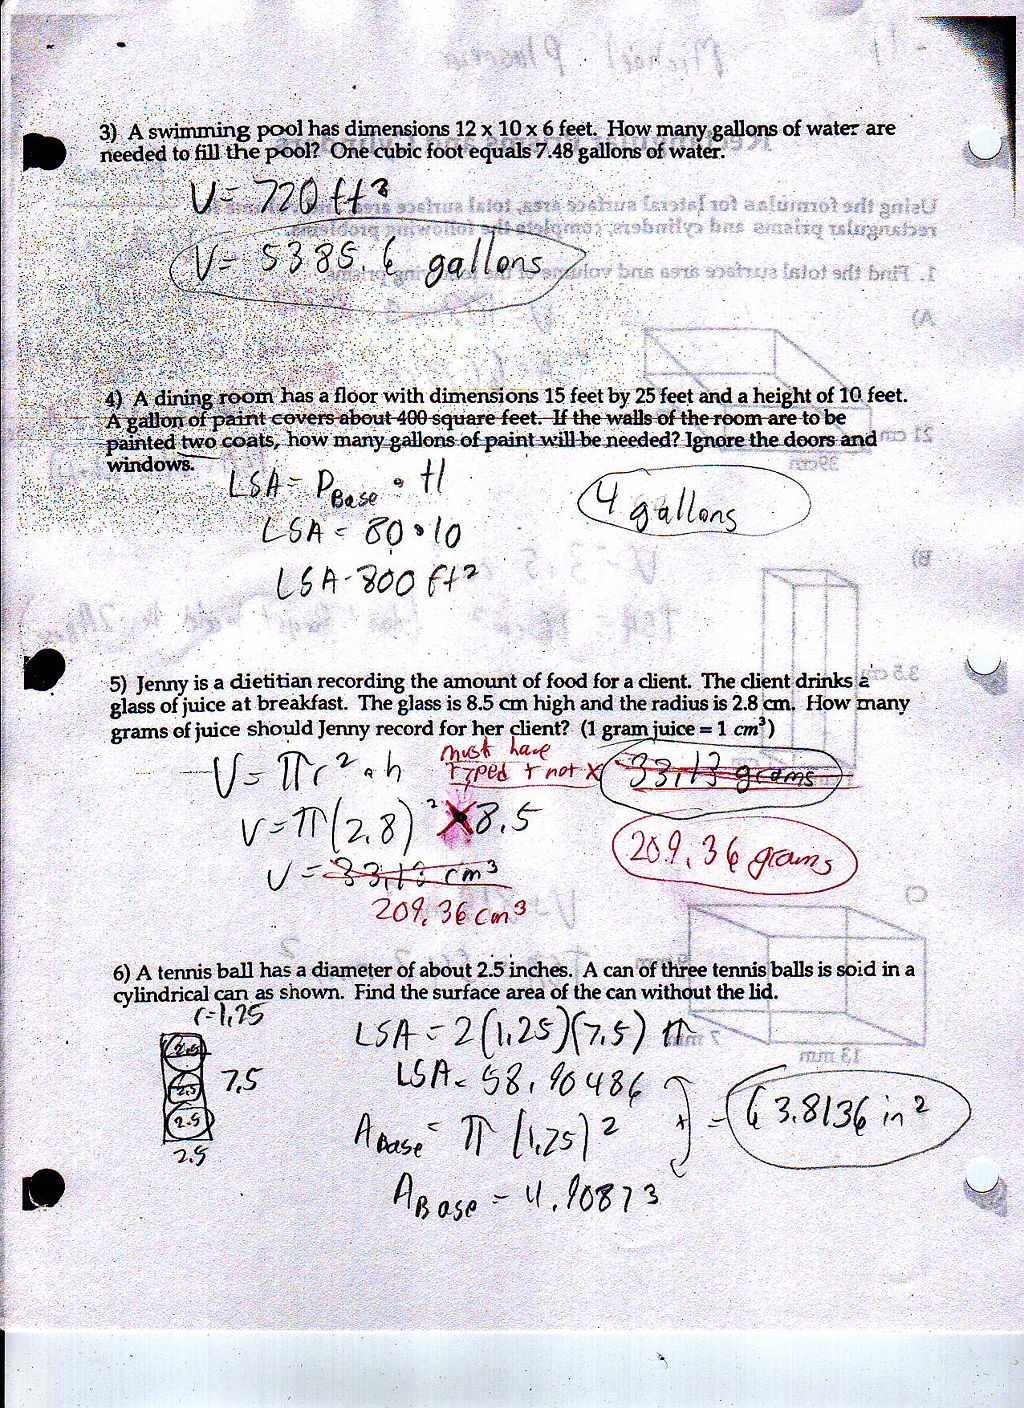 3) A swimming pool has dimensions 12 x 10 x 6 feet. How many gallons of water are
needed to fill the pool? One cubic foot equals 7.48 gallons of water.
V = 720 ft³
V = 5385.6 gallons
4) A dining room has a floor with dimensions 15 feet by 25 feet and a height of 10 feet.
A gallon of paint covers about 400 square feet. If the walls of the room are to be
painted two coats, how many gallons of paint will be needed? Ignore the doors and
windows.
LSA = PBase • H
LSA = 80 • 10
LSA - 800 ft²
4 gallons
5) Jenny is a dietitian recording the amount of food for a client. The client drinks a
glass of juice at breakfast. The glass is 8.5 cm high and the radius is 2.8 cm. How many
grams of juice should Jenny record for her client? (1 gram juice = 1 cm³)
V = πr² • h
must have
typed + not x
33.13 grams
V = π(2.8)² × 8.5
209.36 grams
V = 33.13 cm³
209.36 cm³
6) A tennis ball has a diameter of about 2.5 inches. A can of three tennis balls is sold in a
cylindrical can as shown. Find the surface area of the can without the lid.
r=1.25
2.5
2.5
2.5
7.5
2.5
LSA = 2(1.25)(7.5) π
LSA = 58.90486
ABase = π (1.25)²
ABase = 4.90873
+
= 63.8136 in²